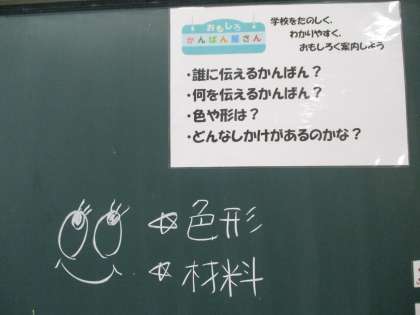 おもしろ
かんばん屋さん
学校をたのしく、
わかりやすく、
おもしろく案内しよう
・誰に伝えるかんばん？
・何を伝えるかんばん？
・色や形は？
・どんなしかけがあるのかな？
☆色形
☆材料